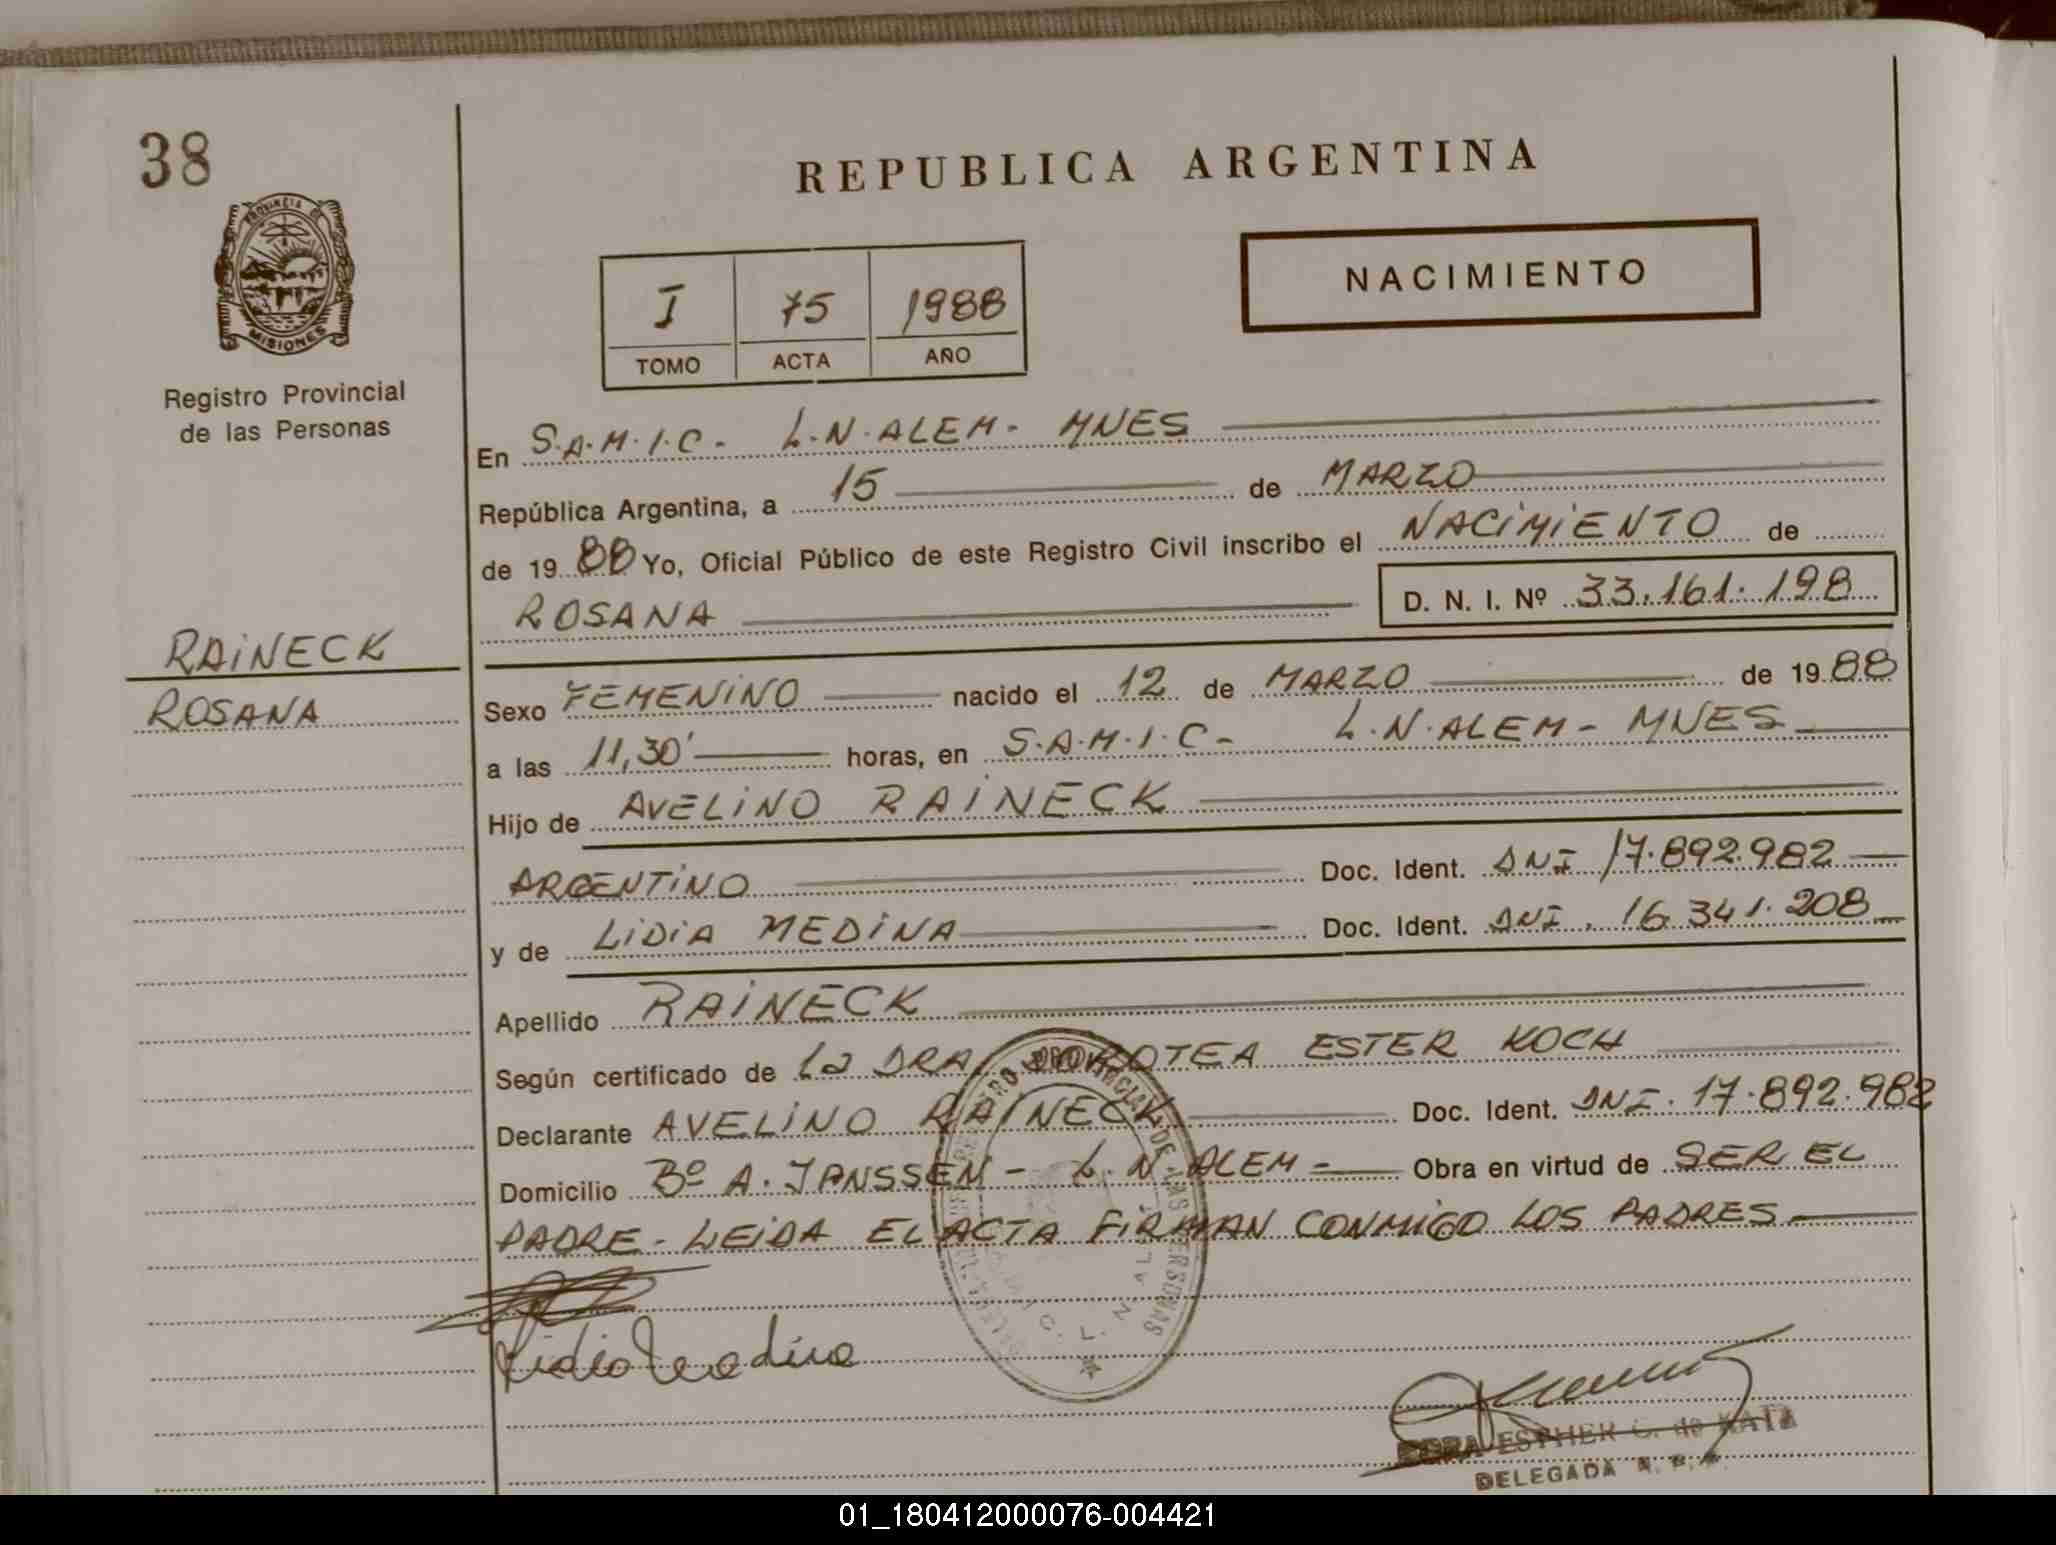 38
PROVINCIA DE
MISIONES
Registro Provincial
de las Personas
RAINECK
ROSANA
REPUBLICA ARGENTINA
I 75 1988
TOMO ACTA AÑO
NACIMIENTO
En S.A.M.I.C- L.N.ALEM- MNES
República Argentina, a 15 de MARZO
de 1988 Yo, Oficial Público de este Registro Civil inscribo el NACIMIENTO de
ROSANA D. N. I. Nº 33.161.198
Sexo FEMENINO nacido el 12 de MARZO de 1988
a las 11,30' horas, en S.A.M.I.C- L.N.ALEM- MNES
Hijo de AVELINO RAINECK
ARGENTINO Doc. Ident. DNI 17.892.982
y de LIDIA MEDINA Doc. Ident. DNI. 16.341.208
Apellido RAINECK
Según certificado de La DRA. DOROTEA ESTER KOCH
Declarante AVELINO RAINECK Doc. Ident. DNI. 17.892.982
Domicilio Bº A. JANSSEN- L.N.ALEM- Obra en virtud de SER EL
PADRE- LEIDA EL ACTA FIRMAN CONMIGO LOS PADRES
Lidia Medina
ESTHER C. de
DELEGADA
01_180412000076-004421